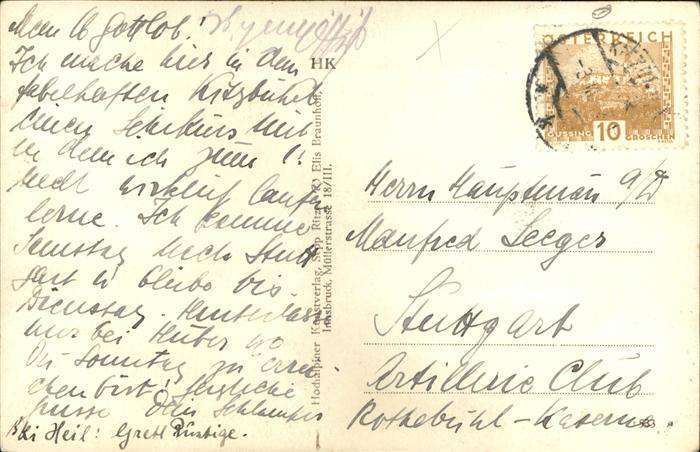 Mein lb Gottlob!
Ich mache hier in dem
fabelhaften Kitzbühel
einen Schikurs mit
in dem ich zum 1.
recht wirklich laufen
lerne. Ich komme
Samstag nach Stutt
gart u bleibe bis
Dienstag. Hinterlass
mir bei Huber wo
Du Sonntag zu errei
chen bist! Herzliche
Grüsse Dein
Ski Heil: Gretl
HK
Hochalpiner Kunstverlag, Sepp Ritzer (O Elis Braunhoff,
Innsbruck, Müllerstrasse 18/III.
ÖSTERREICH
GÜSSING 10 GROSCHEN
Herrn Hauptmann a/D
Manfred Seeger
Stuttgart
Artillerie Club
Rothebühl-Kaserne